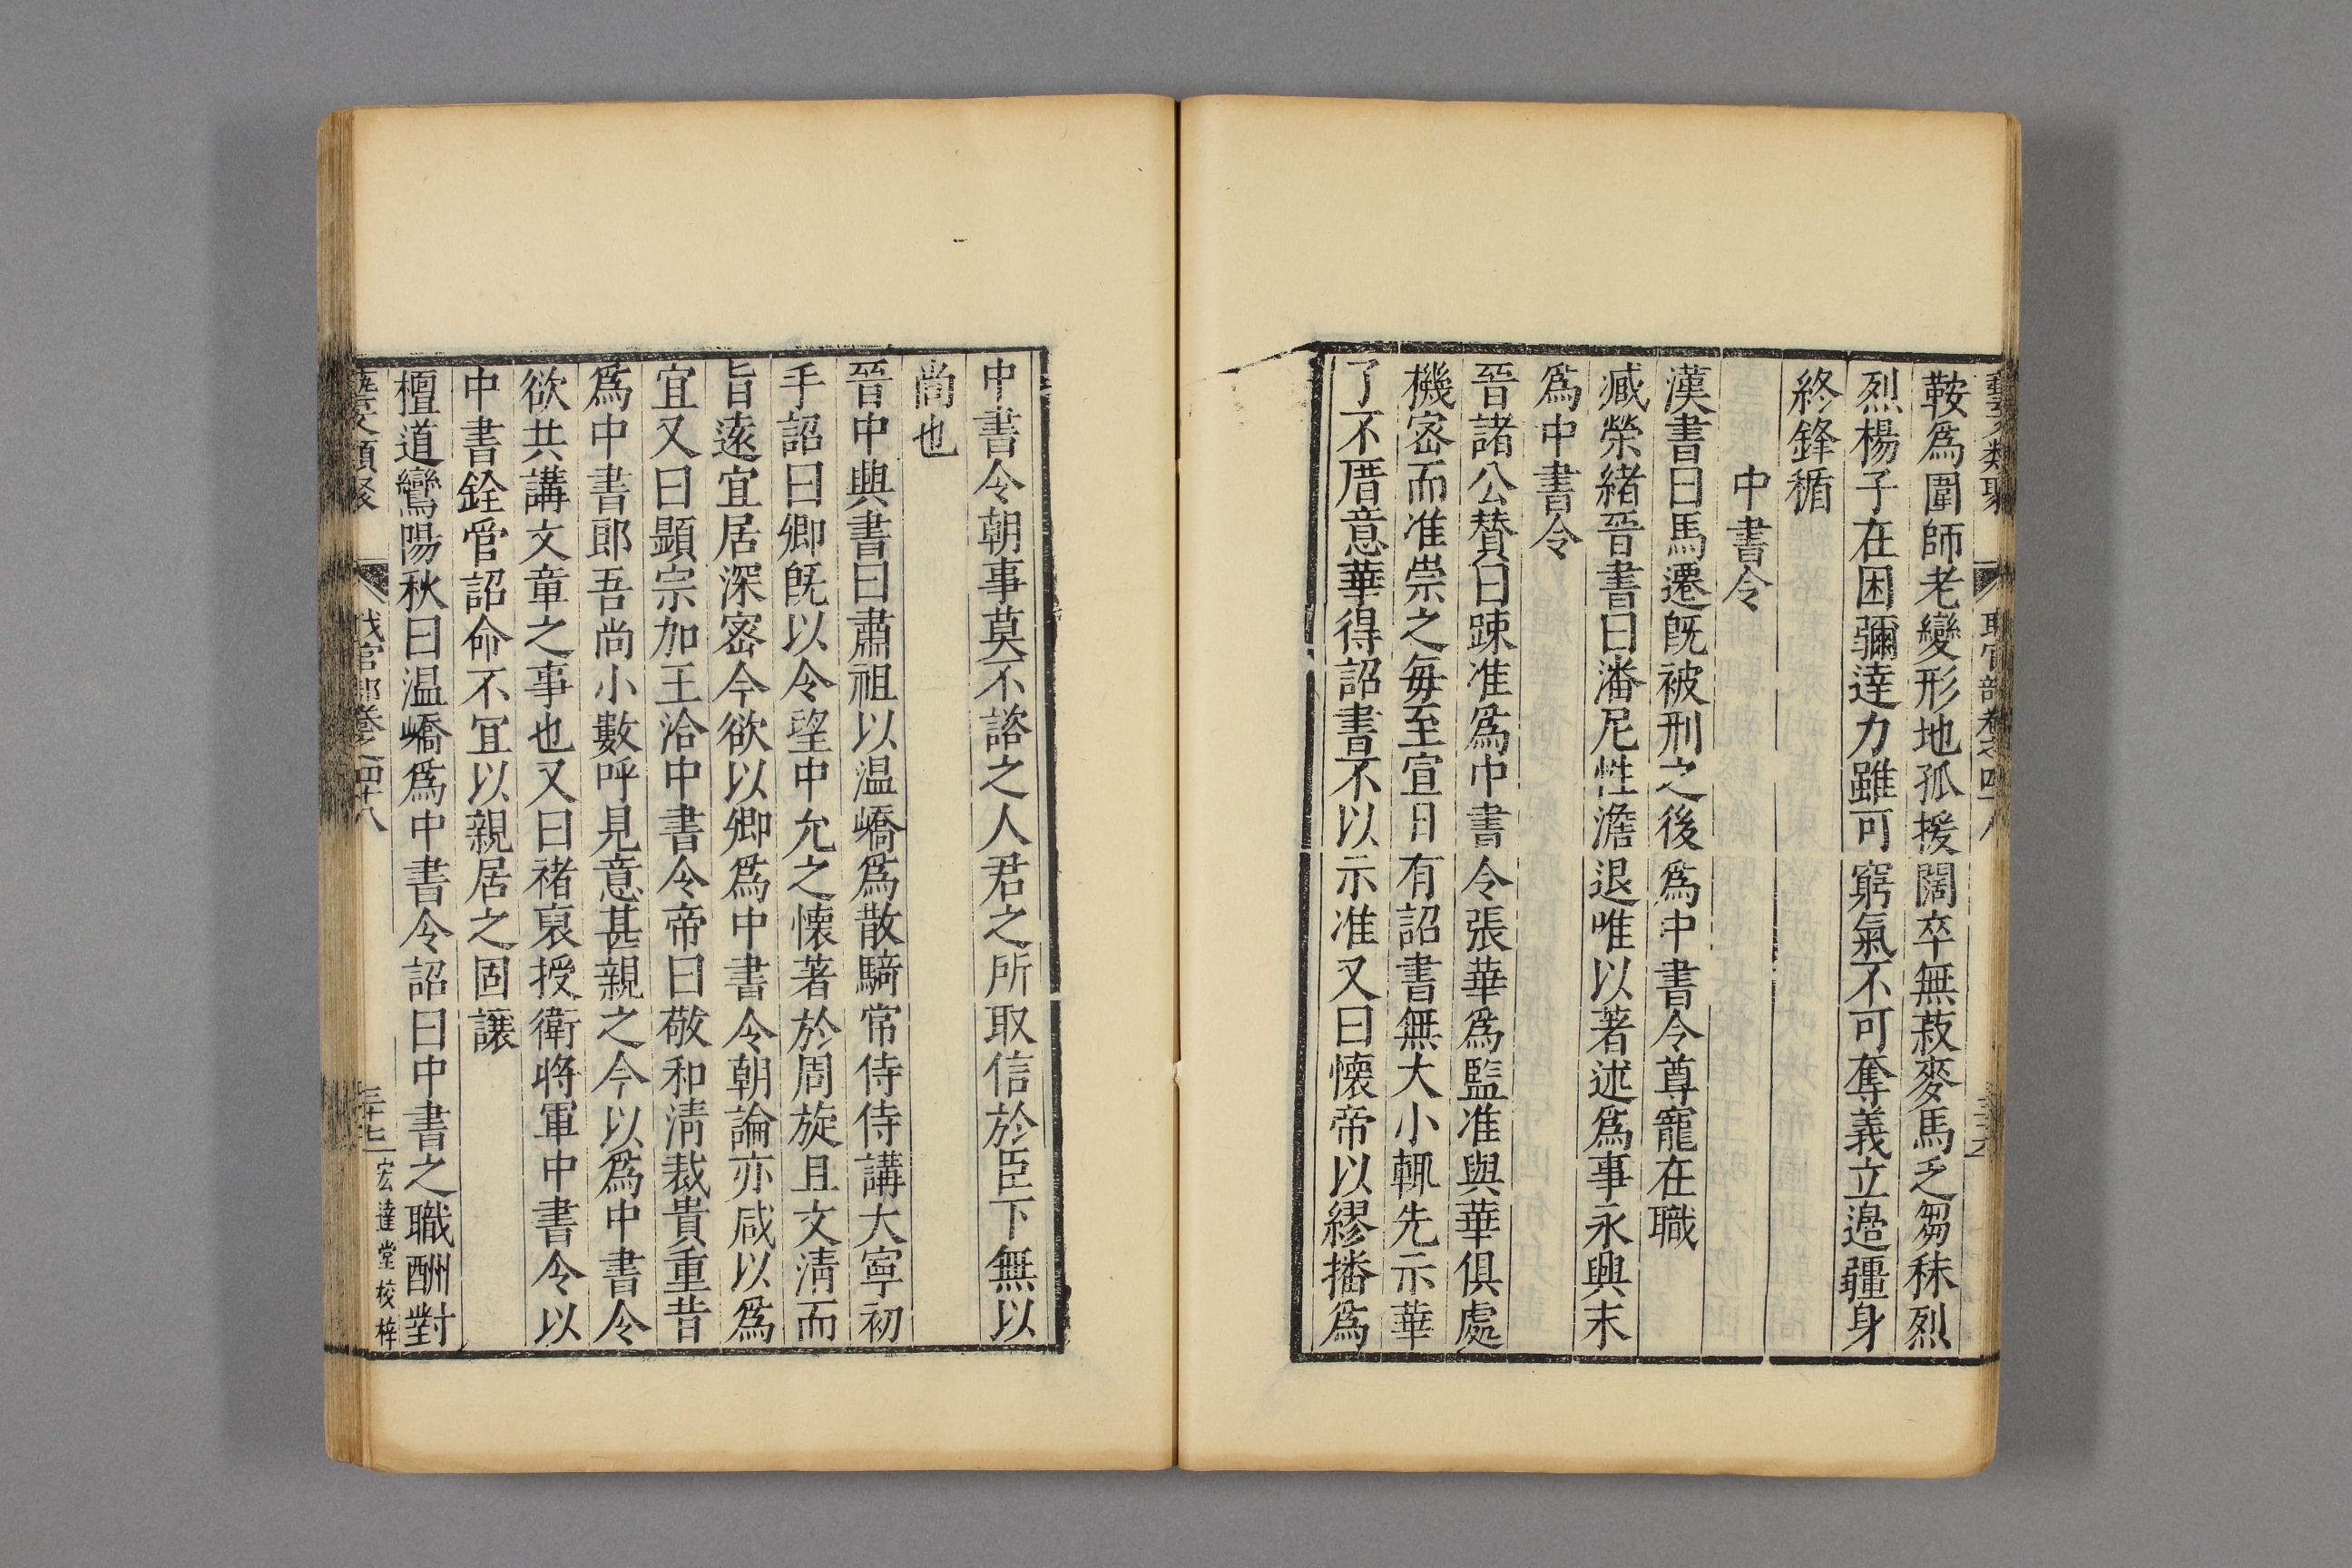 藝文類聚 職官部卷之四十八 三十六
鞍爲圍師老變形地孤援闊卒無菽麥馬乏芻秣烈
烈楊子在困彌達力雖可窮氣不可奪義立邉疆身
終鋒栝
中書令
漢書曰馬遷旣被刑之後爲中書令尊寵在職
臧榮緒晉書曰潘尼性澹退唯以著述爲事永興末
爲中書令
晉諸公賛曰踈准爲中書令張華爲監准與華俱處
機宻而准崇之毎至宣日有詔書無大小輙先示華
了不厝意華得詔書不以示准又曰懐帝以繆播爲
中書令朝事莫不諮之人君之所取信於臣下無以
尚也
晉中興書曰肅祖以温嶠爲散騎常侍侍講大寜初
手詔曰卿旣以令望中允之懐著於周旋且文淸而
旨逺宜居深宻今欲以卿爲中書令朝論亦咸以爲
宜又曰顯宗加王洽中書令帝曰敬和淸裁貴重昔
爲中書郎吾尚小數呼見意甚親之今以爲中書令
欲共講文章之事也又曰禇裒授衛將軍中書令以
中書銓管詔命不冝以親居之固讓
檀道鸞陽秋曰温嶠爲中書令詔曰中書之職酬對
藝文類聚 職官部卷之四十八 三十七 宏達堂校梓